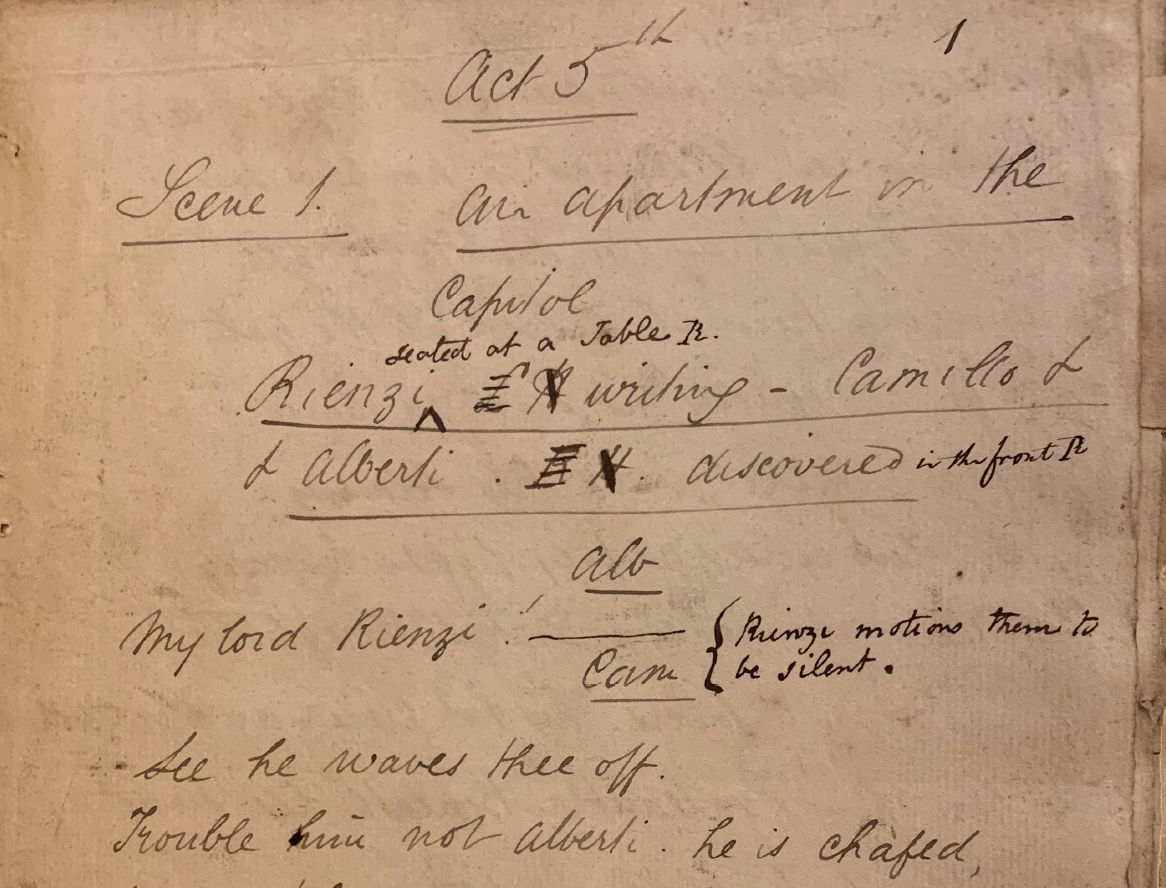 Act 5th 1
Scene 1. An apartment in the
Capitol
seated at a Table R.
Rienzi writing - Camillo &
& Alberti. discovered in the front R
Alb
My lord Rienzi! — { Rienzi motions them to
be silent.
Cam
See he waves thee off.
Trouble him not Alberti. he is chafed,